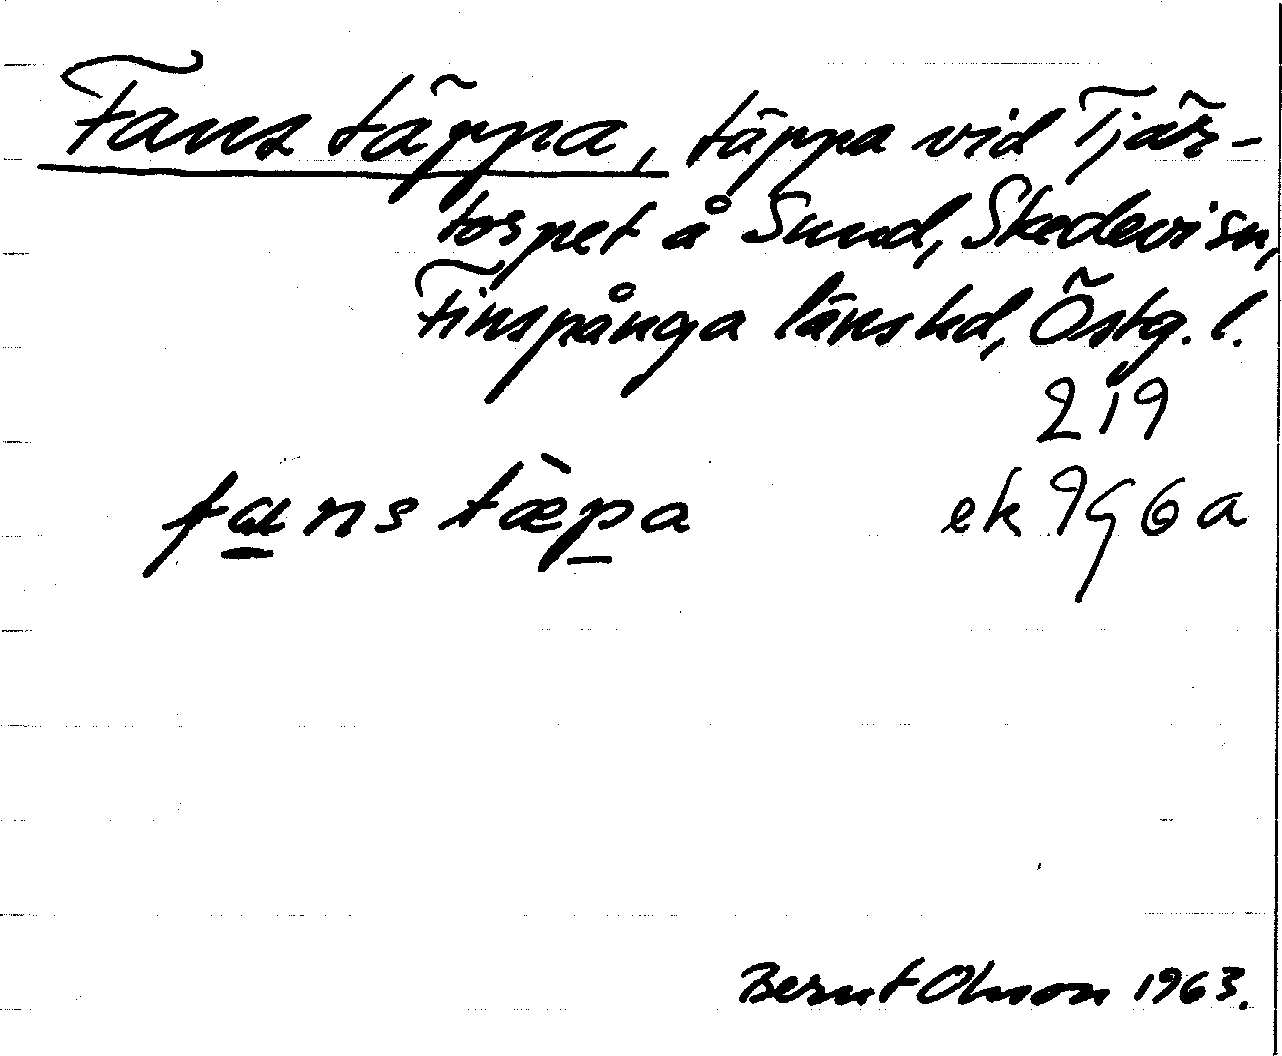 Fans täppa, täppa vid Tjär-
torpet å Sund, Skedevi sn,
Finspånga länshd, Östg. l.
219
fans tæ̀pa ek 9G6a
Bernt Olsson 1963.